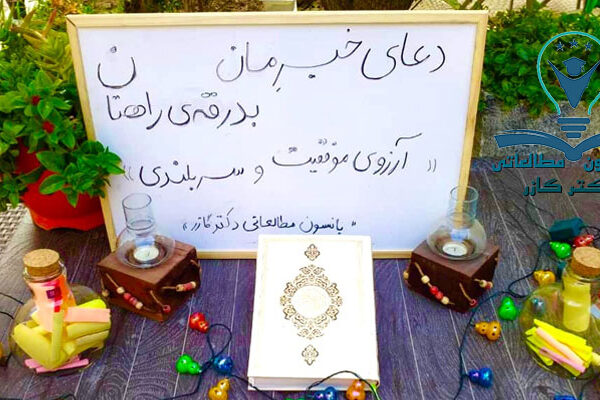 دعای خیرِمان
بدرقه‌ی راهتان
« آرزوی موفقیت و سربلندی »
" پانسون مطالعاتی دکتر گازر "
مطالعاتی
گازر